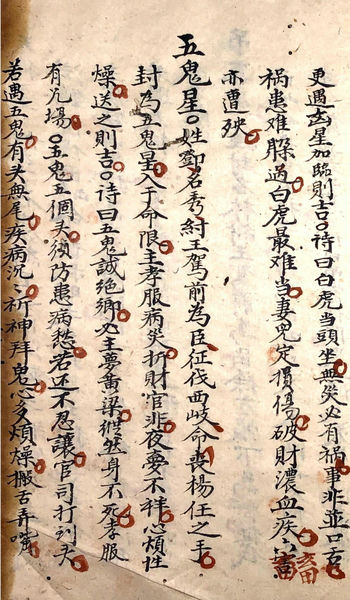 更遇凶星加臨則吉○诗曰白虎当頭坐無災必有祸事非並口舌
祸患难躲過白虎最难当妻児定損傷破財濃血疾六畜
亦遭殃
五鬼星○姓鄧名秀紂王駕前為臣征伐西岐命丧楊任之手
封為五鬼星入于命限主孝服病災折財官非夜夢不祥心煩性
燥送之則吉○诗曰五鬼誠絶鄉必主夢黄梁縱然身不死孝服
有九場○五鬼五個头須防患病愁若还不忍讓官司打到头
若遇五鬼有头無尾疾病沉沉祈神拜鬼心多煩燥搬舌弄嘴